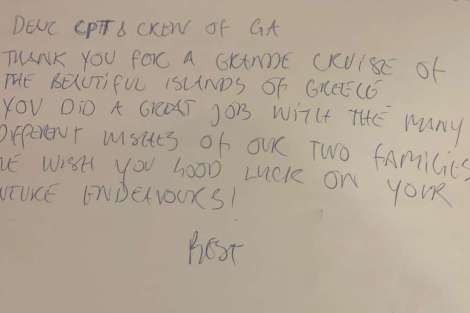 DEAR CPT & CREW OF GA
THANK YOU FOR A GRANDE CRUISE OF
THE BEAUTIFUL ISLANDS OF GREECE
YOU DID A GREAT JOB WITH THE MANY
DIFFERENT WISHES OF OUR TWO FAMILIES
WE WISH YOU GOOD LUCK ON YOUR
FUTURE ENDEAVOURS!
BEST